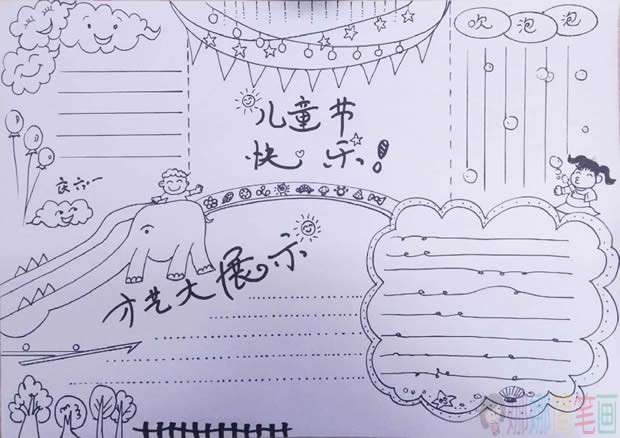 吹泡泡
儿童节
快乐!
庆六一
才艺大展示
娜娜简笔画